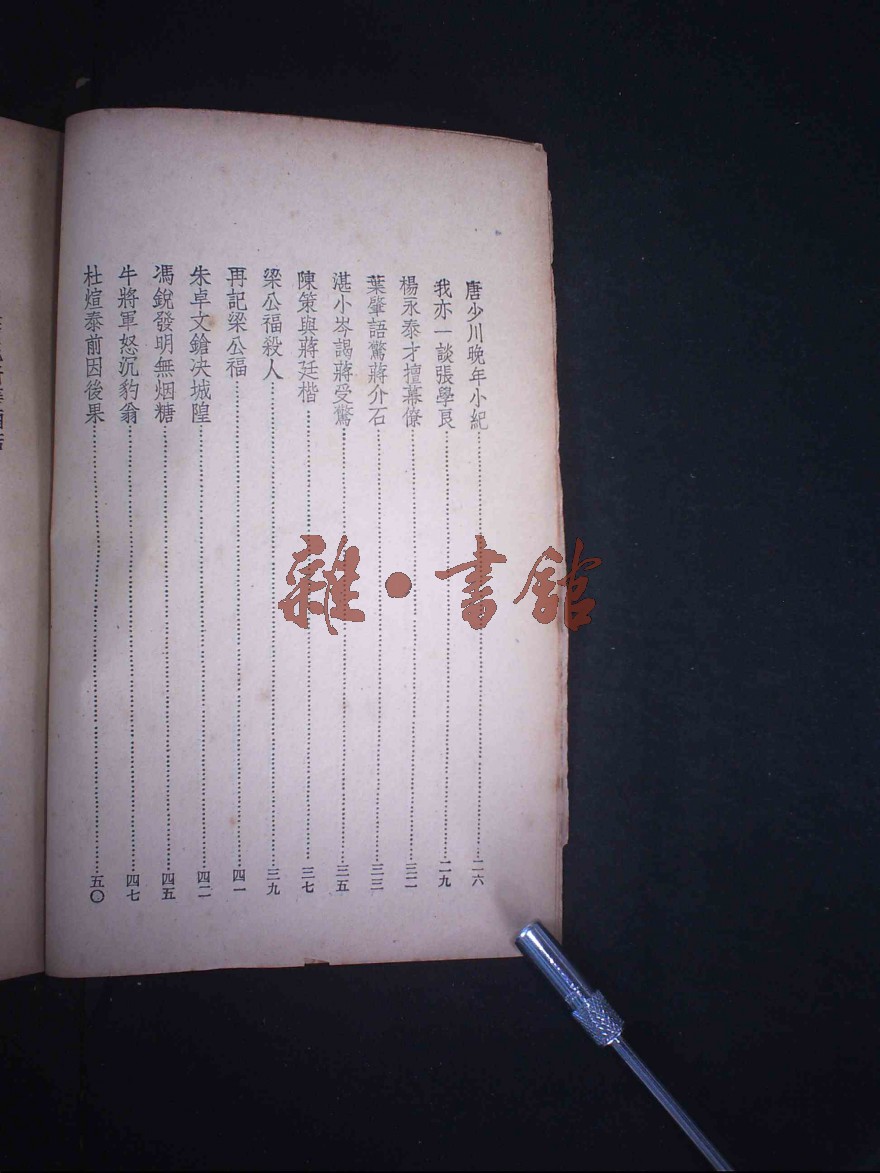 唐少川晚年小紀……二六
我亦一談張學良……二九
楊永泰才擅幕僚……三二
葉肇語驚蔣介石……三三
湛小岑謁蔣受驚……三五
陳策與蔣廷楷……三七
梁公福殺人……三九
再記梁公福……四一
朱卓文鎗决城隍……四二
馮銳發明無烟糖……四五
牛將軍怒沉豹翁……四七
杜煊泰前因後果……五〇
雜·書館